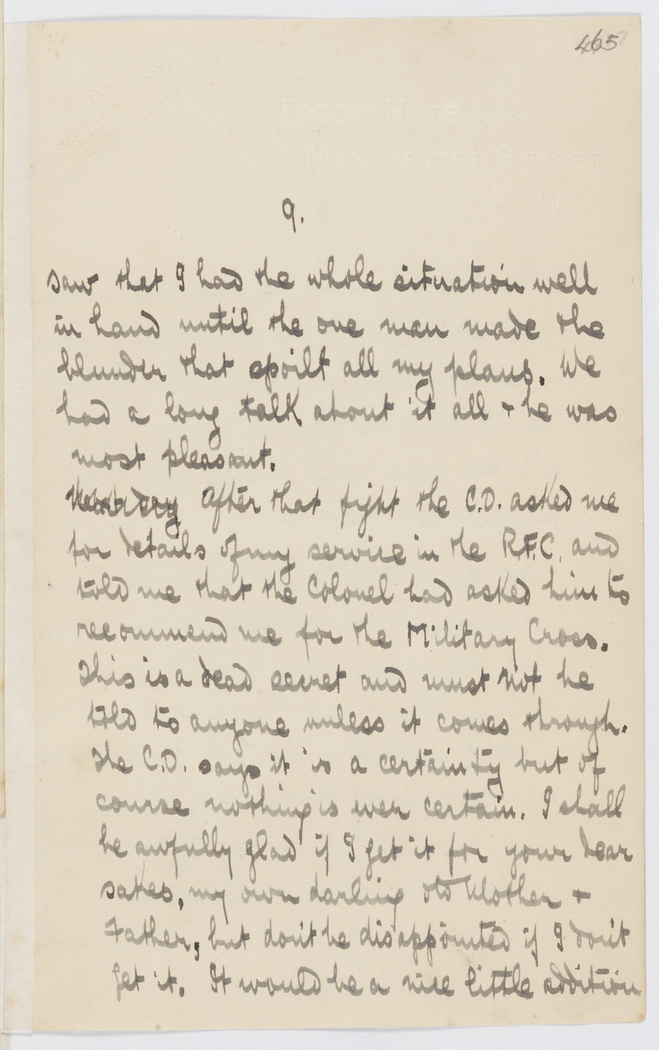 465
FORDS HOTEL
MANCHESTER STREET
9.
saw that I had the whole situation well
in hand until the one man made the
blunder that spoilt all my plans. We
had a long talk about it all + he was
most pleasant.
After that fight the C.O. asked me
for details of my service in the R.F.C. and
told me that the Colonel had asked him to
recommend me for the Military Cross.
This is a dead secret and must not be
told to anyone unless it comes through.
The C.O. says it is a certainty but of
course nothing is ever certain. I shall
be awfully glad if I get it for your dear
sakes, my own darling old Mother +
Father, but don't be disappointed if I don't
get it. It would be a nice little addition